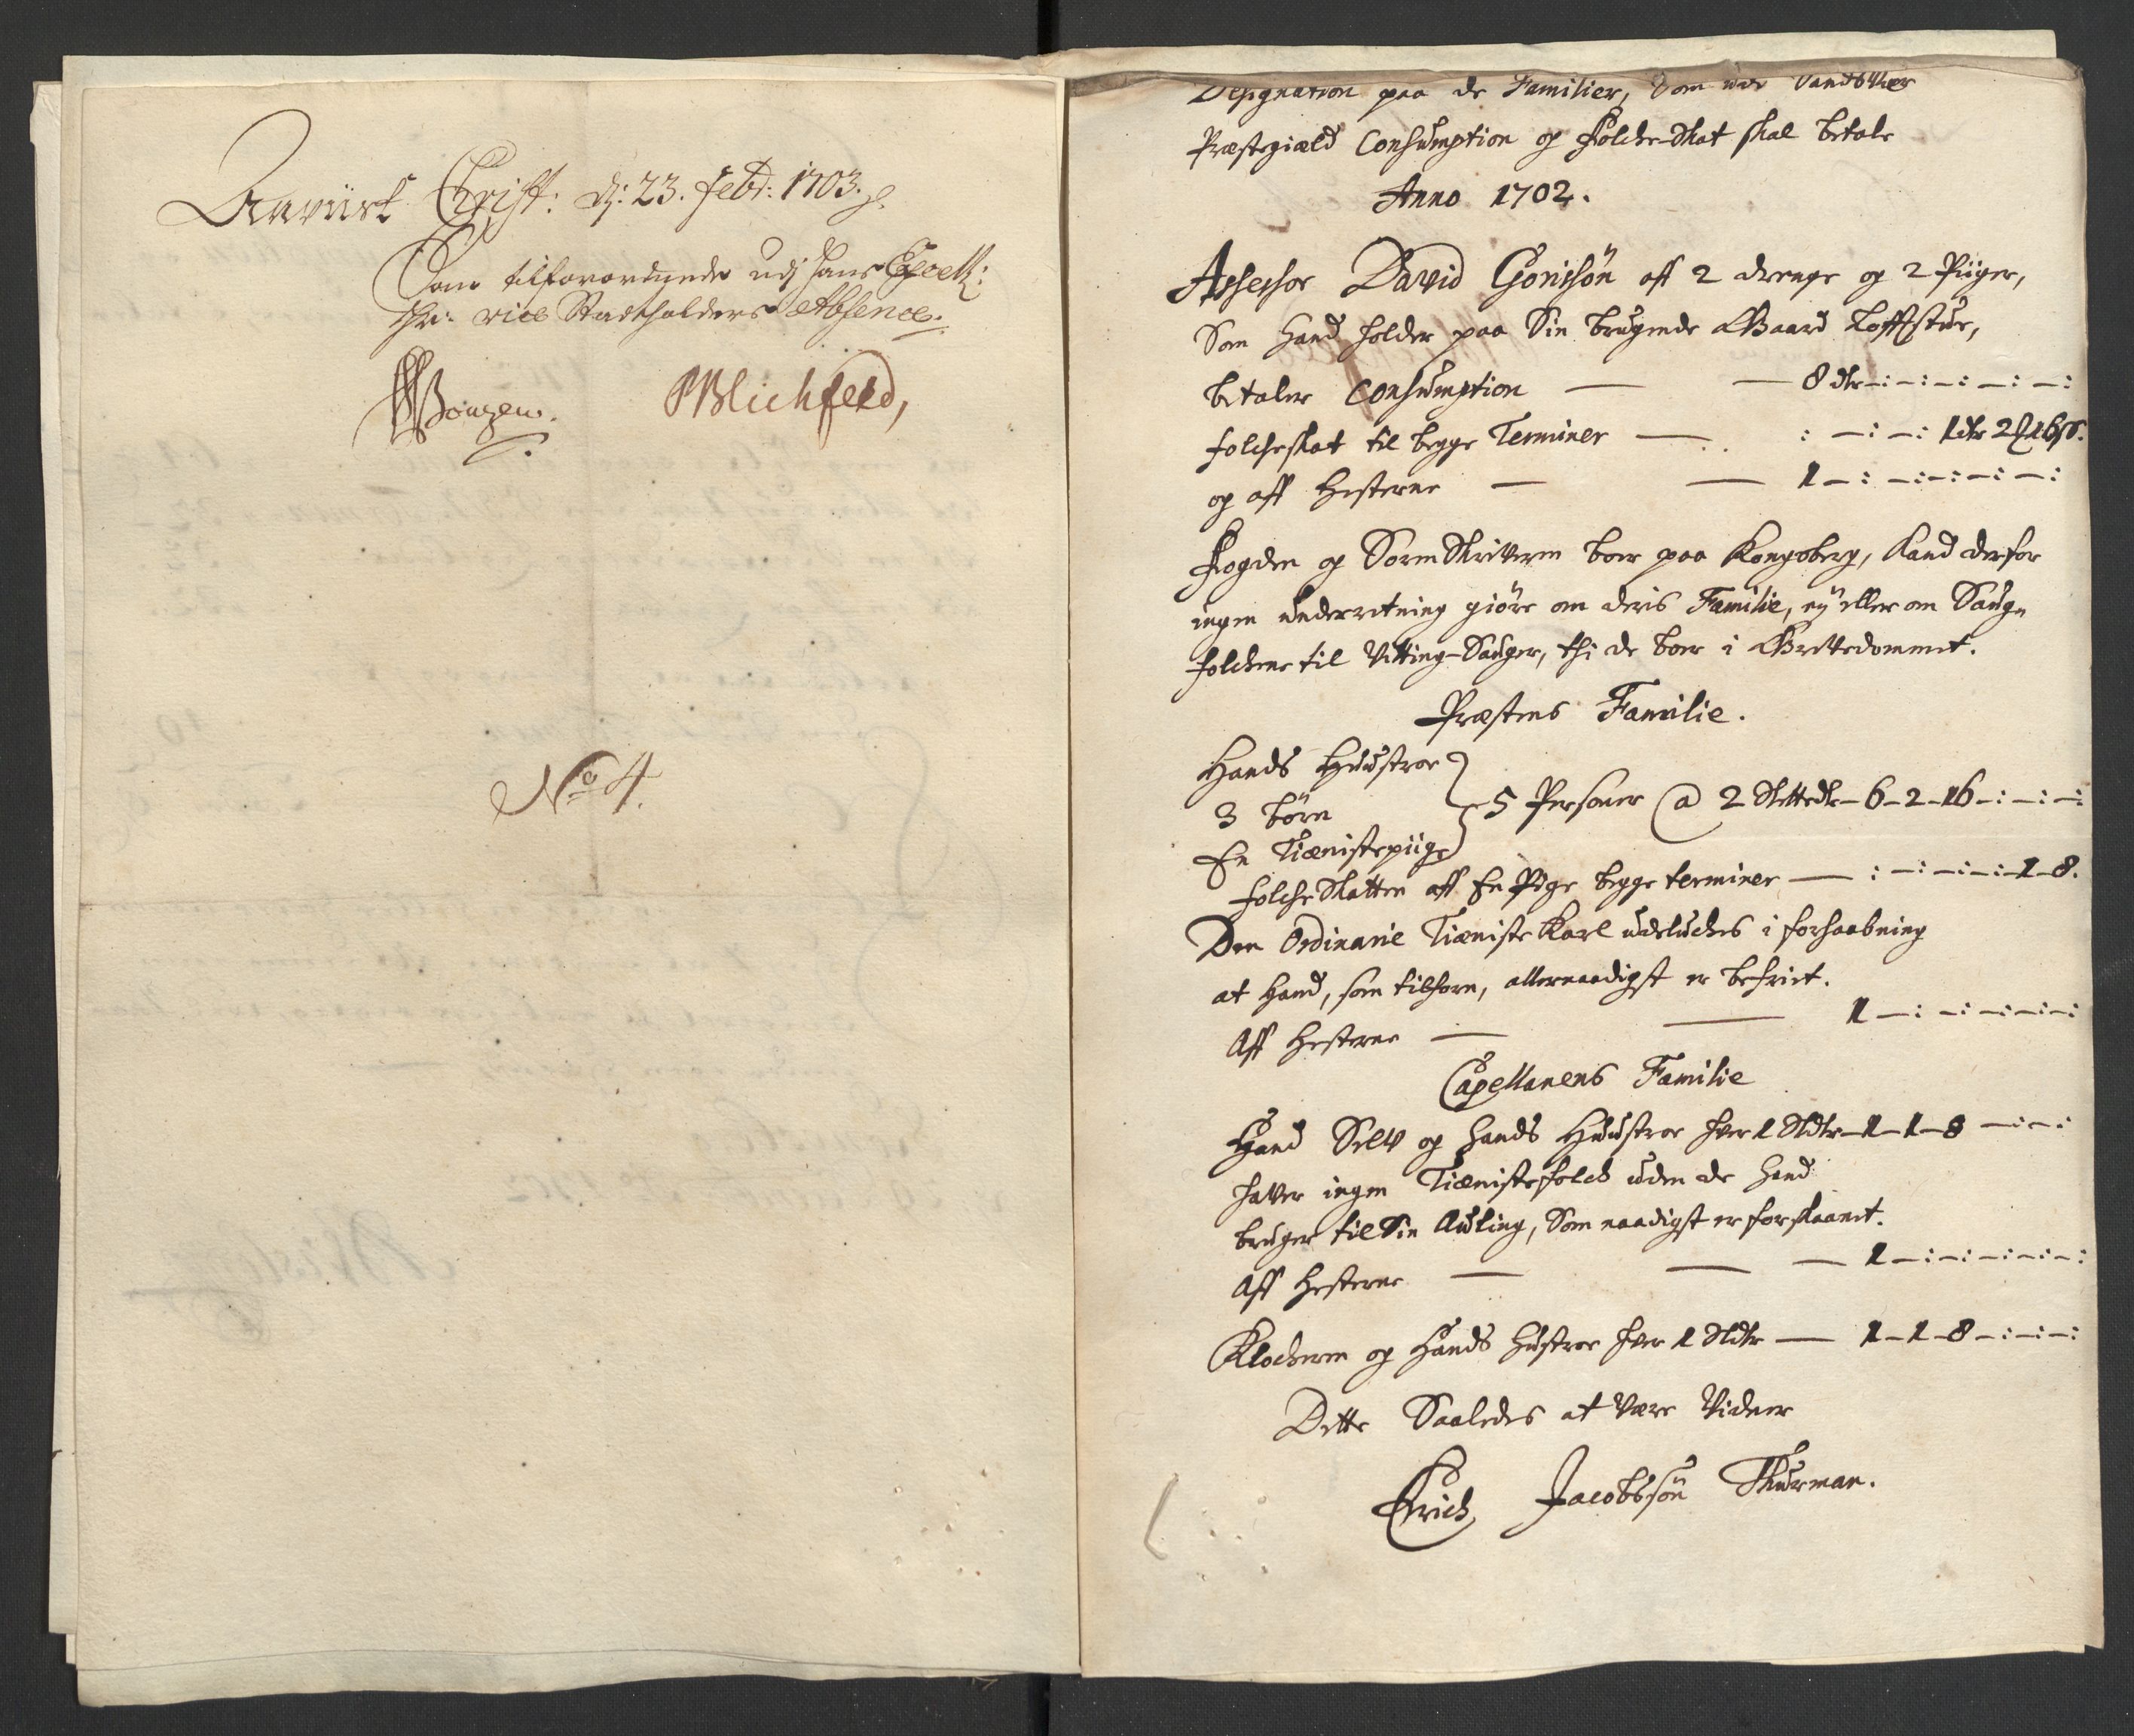 Anviist Christ: d: 23. Febr: 1703.
Som tilforordnede udj hans Excell:
Hr: vice Stadtholders Absence.
PBlichfeld,
No 4.
Designation paa de Familier, som udi Sandsver
Præstegiæld Consumption og Folche-Skat skal betale
Anno 1702.
Assessor David Gonisøn aff 2 drenge og 2 Piiger,
Som Hand holder paa Sin brugende Gaard Loffstue,
betaler Consumption — — 8 dr -:-:-:-:-:
folcheskat til begge Terminer — : -:-: 1 dr 2 ʒ 16 s.
og aff Hesterne — — 1 -: -:-:-:-:
Fogden og SorenSkriveren boer paa Kongsberg, kand derfor
ingen underretning giøre om deris Familie, ey eller om Saug-
folckene til Vitting-Sauger, thi de boer i Grevedommet.
Præstens Familie.
Hands Huustroe
3 børn
En Tiænistepiige
5 Personer @ 2 Slettedr - 6 - 2 - 16 -:-:-:
FolcheSkatten aff En Pige begge terminer — : -:-:-: 1 - 8.
Den Ordinarie Tieniste Karl udeluckes i forhaabning
at Hand, som tilforn, allernaadigst er befriet.
Aff Hesterne — — 1 -: -:-:-:-:
Capellanens Familie
Hand Selv og Hands Huustroe hver 1 Sldr - 1 - 1 - 8 -:-:
hafver ingen Tiænistefolck uden de Hand
bruger til Sin Auling, Som naadigst er forskaanet.
Aff Hesterne — — — 1 -:-:-:-:-:
Klockeren og Hands Hustroe hver 1 Sldr — 1 - 1 - 8 -:-:-:
Dette Saaledes at være Vidner
Erich Jacobssøn Thurman.